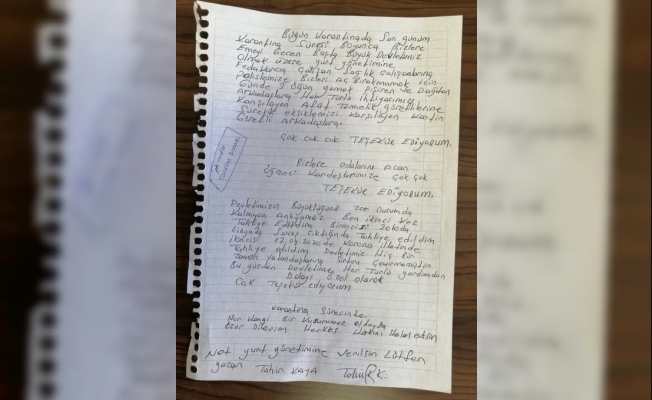 Bugün Karantinada Son günüm
Karantina Süresi Boyunca Bizlere
Emeği Gecen Başta Büyük Devletimiz
Olmak üzere yurt yönetimine
Fedakarca Çalışan Sağlık Çalışanlarına
Polislerimize Bizleri Aç Bırakmamak için
Günde 3 Öğün yemek pişiren ve Dağıtan
Arkadaşlara Her Türlü ihtiyacımızı
Karşılayan Afat Temizlik görevlilerine
Sürekli eksiklerimizi Karşılayan Kantin
Görevli Arkadaşlara.
Çok cok cok TEŞEKÜR EDİYORUM.
Bizlere odalarını Açan
Öğrenci Kardeşlerimize Çok çok
TEŞEKÜR EDİYORUM.
Devletimizin Büyüklüğünü Zor Durumda
Kalmıyan Anlıyamaz Ben ikinci Kez
Tahliye Edildim Birincisi
Libyada Savaş Çıktığında Tahliye edildim
ikincisi 17.04.2020 de Korona illetinde
Tahliye edildim Devletimiz Hiç Bir
zaman Vatandaşlarına Sırtını
Bu yüzden Devletime Her Türlü yardımdan
Dolayı özel olarak
Çok Teşekür ediyorum
Karantina Sürecinde
Her Hangi Bir Kusurumuz olduysa
Özür Dilerim Herkes Hakkını Helal etsin
Not yurt yönetimine verilsin Lütfen
yazan Tahir KAYA